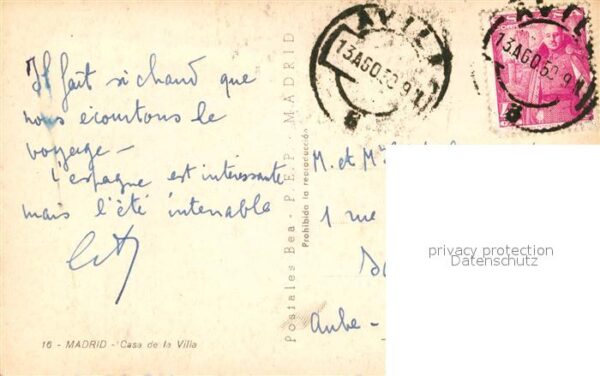 Il fait si chaud que
nous écourtons le
voyage -
L'espagne est intéressante
mais l'été intenable
16 - MADRID - Casa de la Villa
Postales Bea. - P.E.P. MADRID
Prohibida la reproducción
AVILA
13 AGO
AVILA
13 AGO
M. et M
1 rue
Aube -
privacy protection
Datenschutz